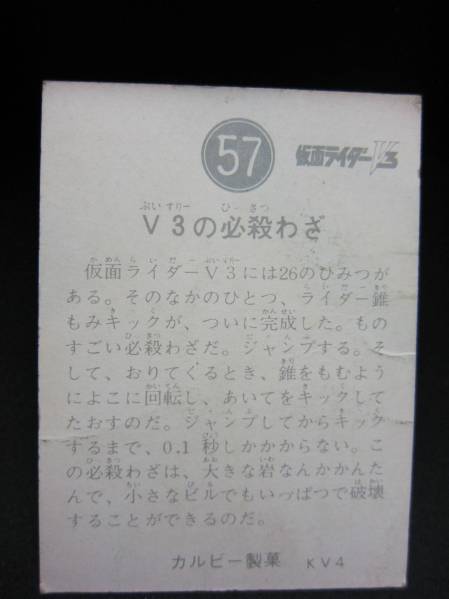 57 仮面ライダーV3
V3の必殺わざ
仮面ライダーV3には26のひみつが
ある。そのなかのひとつ、ライダー錐
もみキックが、ついに完成した。もの
すごい必殺わざだ。ジャンプする。そ
して、おりてくるとき、錐をもむよう
によこに回転し、あいてをキックして
たおすのだ。ジャンプしてからキック
するまで、0.1秒しかかからない。こ
の必殺わざは、大きな岩なんかかんた
んで、小さなビルでもいっぱつで破壊
することができるのだ。
カルビー製菓 KV4